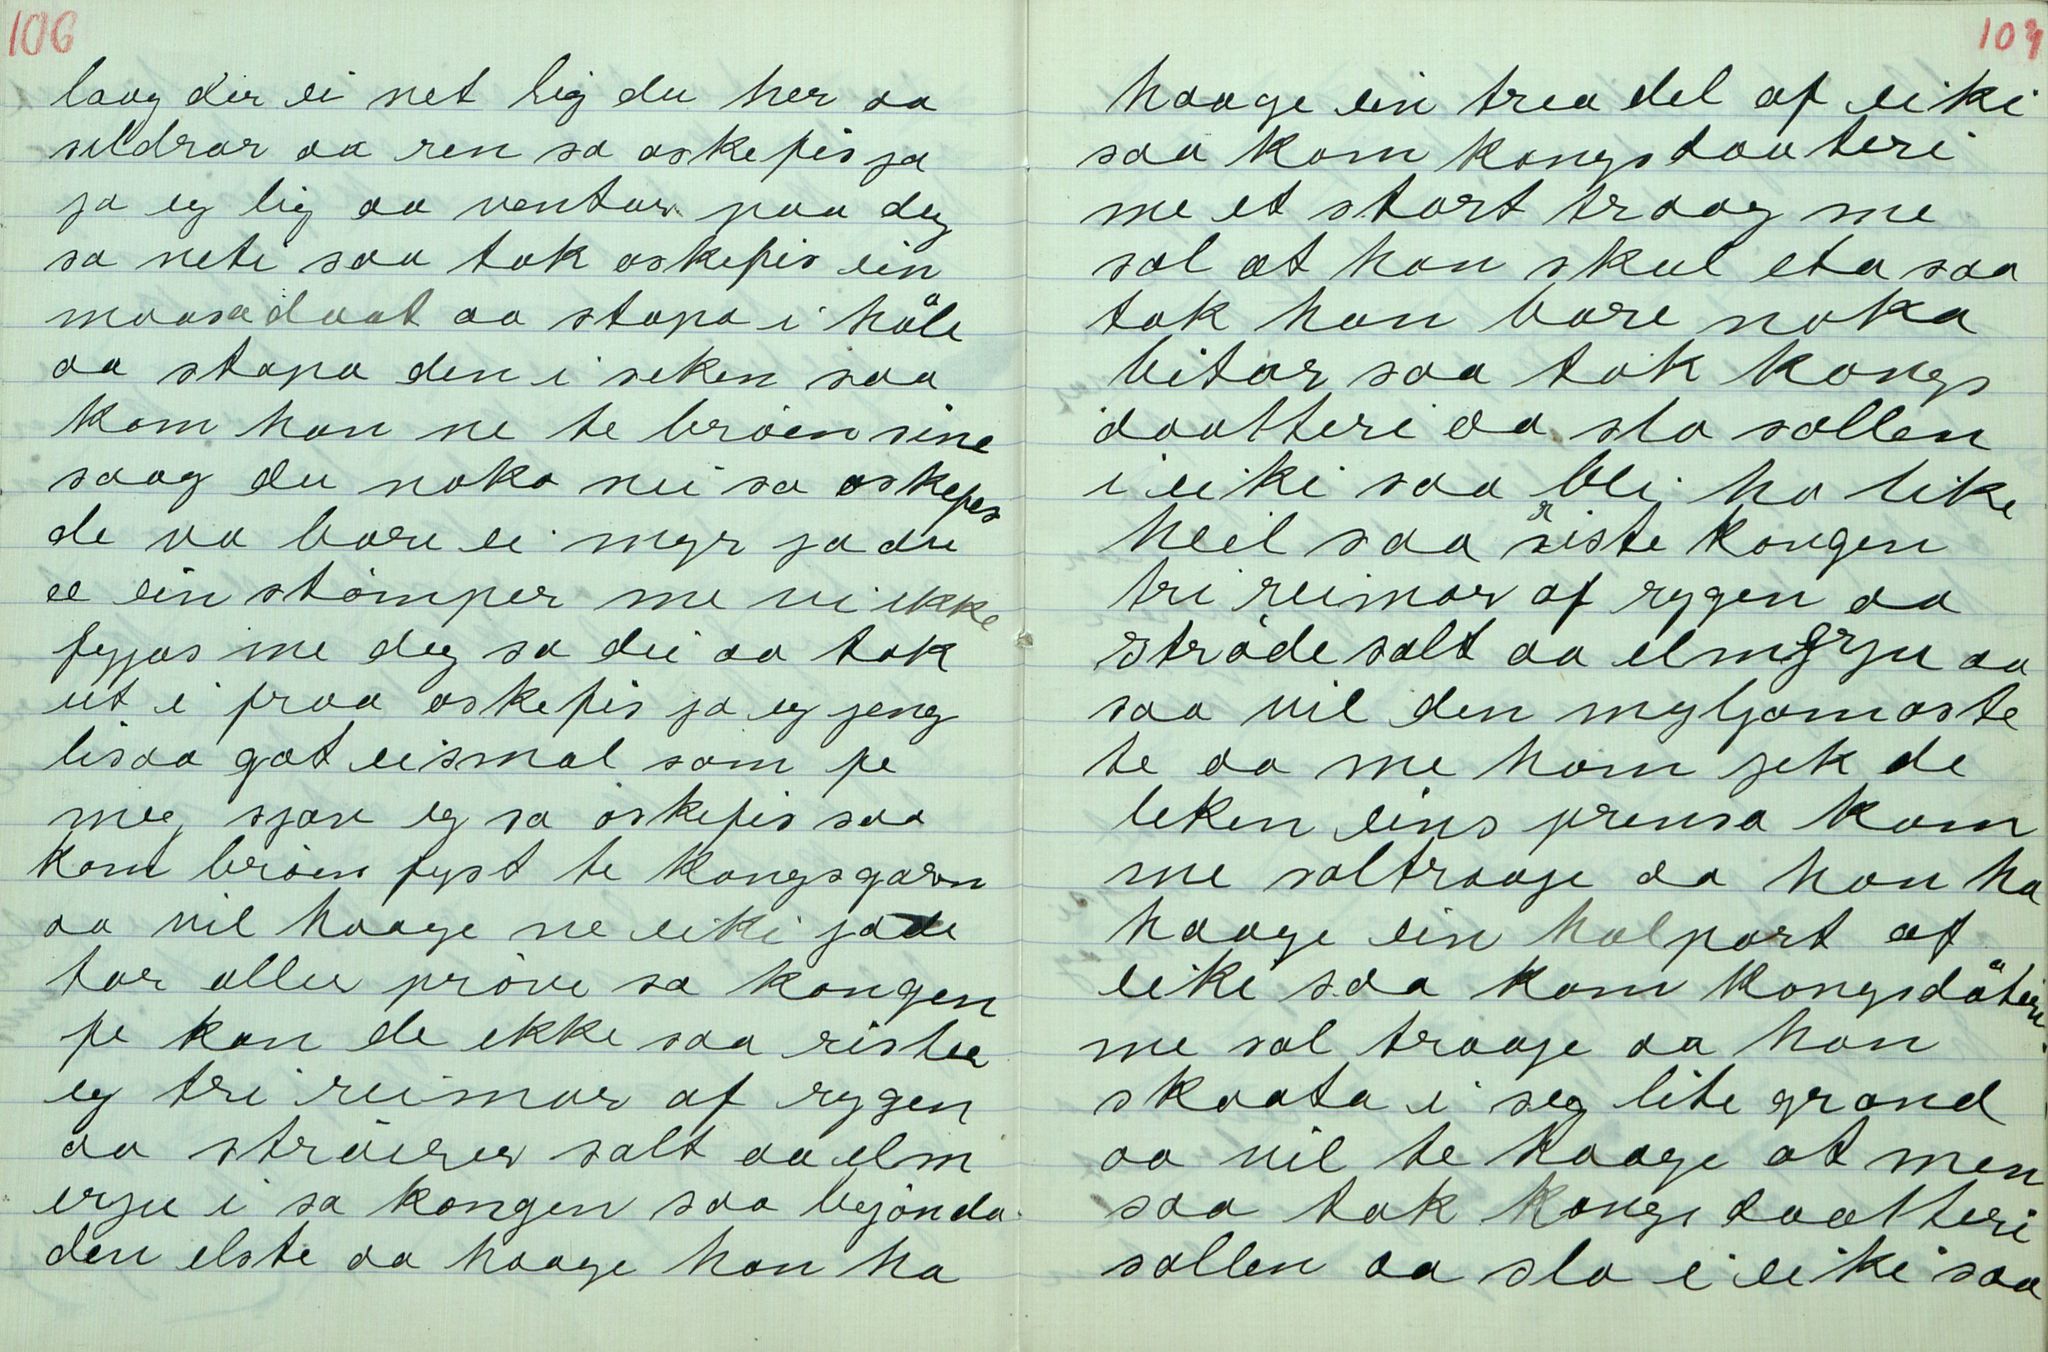 106
laag der ei net lig du her aa
sildrar aa ren sa askefis ja
ja eg lig aa ventar paa deg
sa neti saa tok oskefis ein
maasadaat aa stapa i håle
aa stapa den i seken saa
kom han ne te brøen sine
saag du noko nei sa oskefis
de va bare ei myr ja du
e ein stomper me vi ikke
fyjas me deg sa dei aa tok
ut i fraa oskefis ja eg jeng
lisaa got eismal som fe
meg sjøv eg sa oskefis saa
kom brøen fyst te kongsgarn
aa vil haage ne eiki ja de
tar aller prøve sa kongen
fe kan de ikke saa rister
eg tri reimar af rygen
aa strøierer salt aa elm
erju i sa kongen saa bejønda
den elste aa haage han ha
107
haage ein trea del af eiki
saa kom kongsdaateri
me et stort traag me
sol at han skul eta saa
tok han bare noka
bitar saa tok kongs
daatteri aa sla sollen
i eiki saa blei ho like
heil saa riste kongen
tri reimar af rygen aa
strøde salt aa elmerju aa
saa vil den myljomaste
te aa me hom jek de
leken eins prensa kom
me soltraage aa han ha
haage ein halpart af
eiki saa kom kongsdåteri
me sol traage aa han
skaata i seg lite grand
aa vil te haage at men
saa tok kongsdaatteri
sollen aa sla i eiki saa